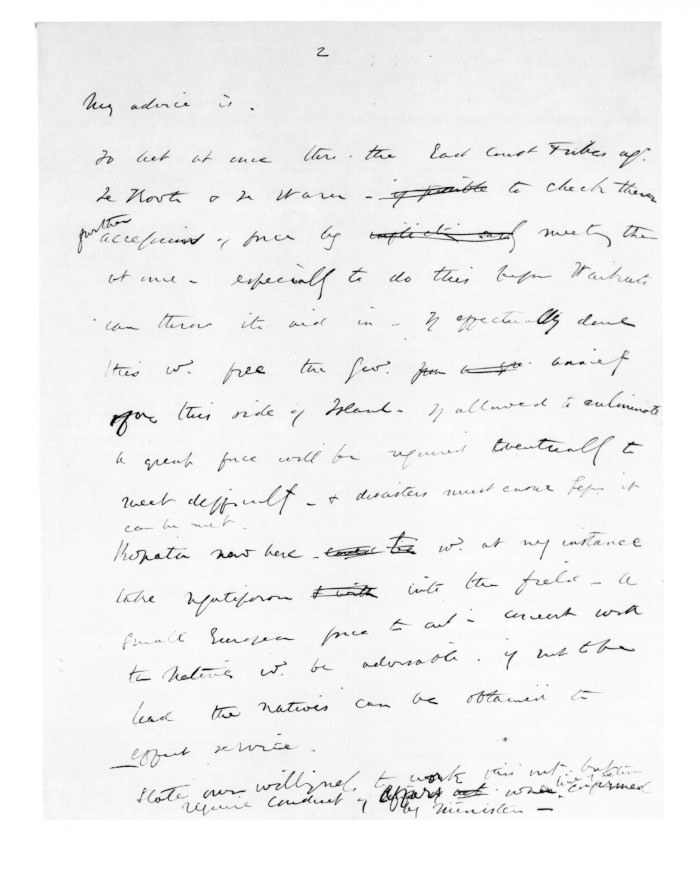 2
My advice is.
To act at once thro' the East Coast Tribes agt.
Te Kooti & Te Waru - if possible to check their
further accessions of force by meeting them
at once - especially to do this before Waikato
can throw its aid in - If effectually done
this wd. free the Gov. from anxiety
for this side of Island - If allowed to culminate
a great force will be required eventually to
meet difficulty - & disasters must ensue before it
can be met -
Ropata now here - wd. at my instance
take Ngatiporou into the field - a
small European force to act in concert with
the Natives wd. be advisable. if not to be
had the natives can be obtained to
effect service.
State our willingness to work this out but
require conduct of affairs when confirmed
by Minister -